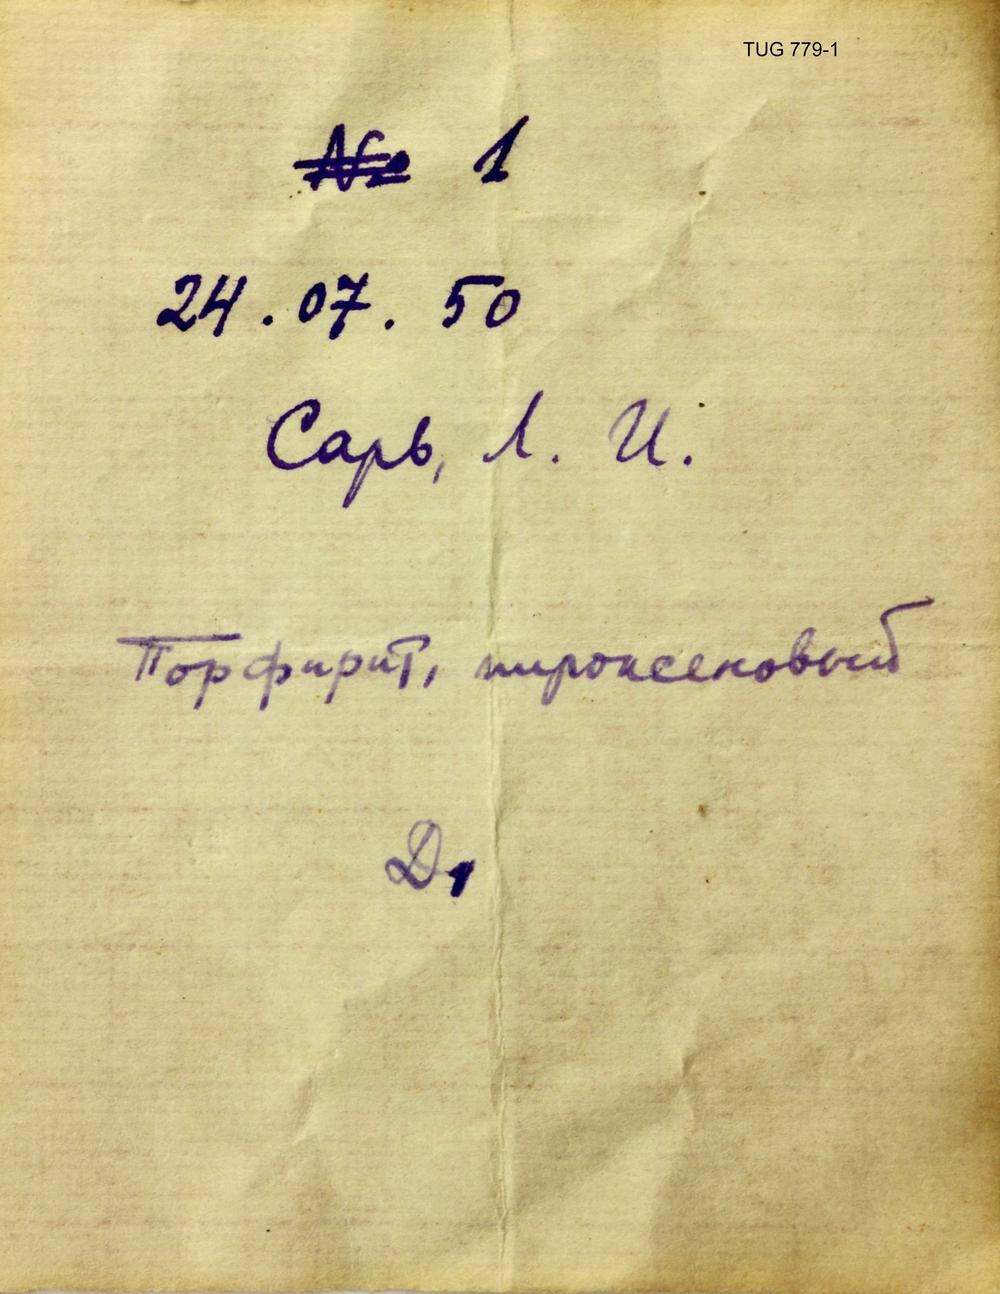 TUG 779-1
№ 1
24.07.50
Сарв, Л. И.
Порфирит, пироксеновый
Д1